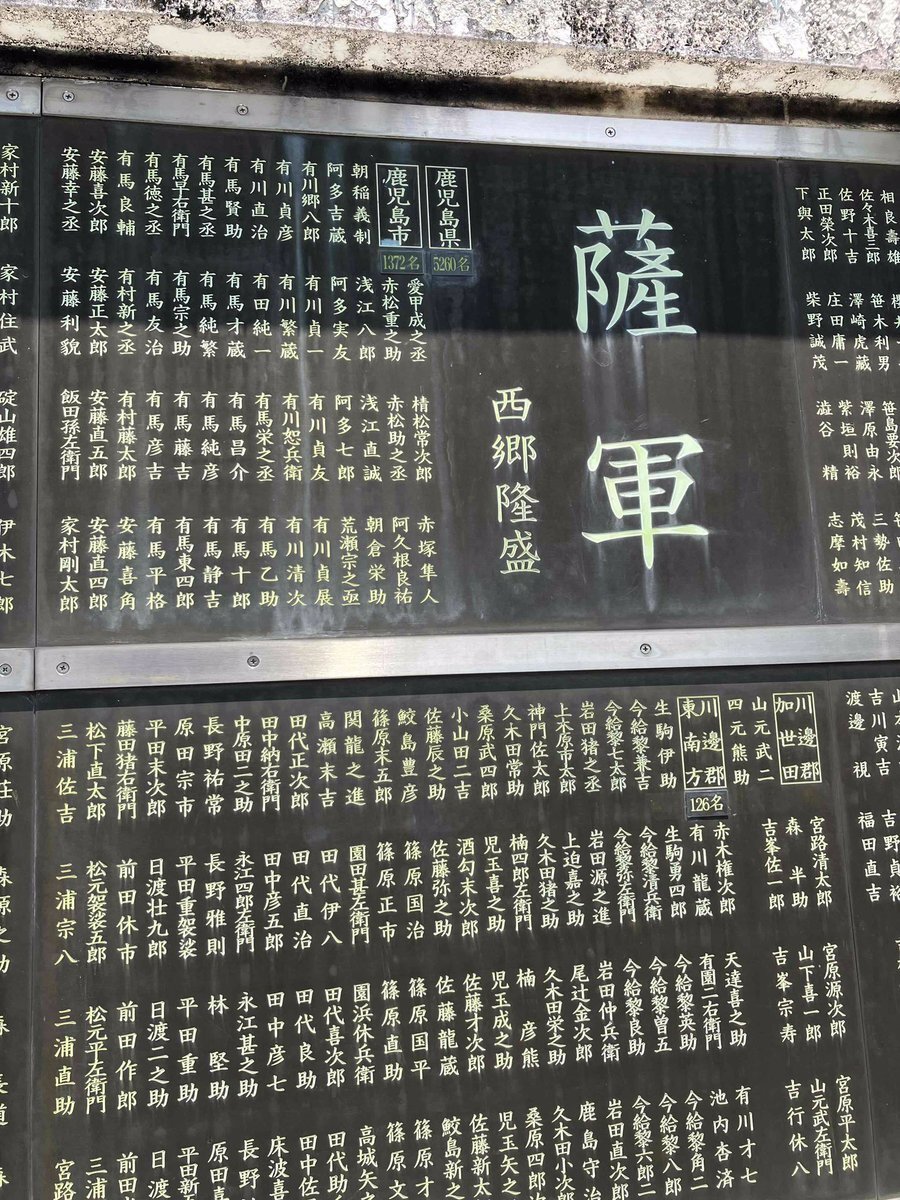 佐々木喜三郎 笹木利男 笹島要次郎
佐野十吉 澤崎虎藏 澤原由永 三勢佐助
正田榮次郎 庄田庸一 紫垣則裕 茂村知信
下與太郎 柴野誠茂 澁谷精 志摩如壽
薩軍
西郷隆盛
鹿児島県 5260名
鹿児島市 1372名
愛甲成之丞 棈松常次郎 赤塚隼人
赤松重之助 赤松助之丞 阿久根良祐
朝稲義制 浅江八郎 浅江直誠 朝倉栄助
阿多吉蔵 阿多実友 阿多七郎 荒瀬宗之亟
有川郷八郎 有川貞一 有川貞友 有川貞展
有川貞彦 有川繁蔵 有川恕兵衛 有川清次
有川直治 有田純一 有馬栄之丞 有馬乙助
有馬賢助 有馬才蔵 有馬昌介 有馬十郎
有馬甚之丞 有馬純繁 有馬純彦 有馬静吉
有馬早右衛門 有馬宗之助 有馬藤吉 有馬東四郎
有馬徳之丞 有馬友治 有馬彦吉 有馬平格
有馬良輔 有村新之丞 有村藤太郎 安藤喜角
安藤喜次郎 安藤正太郎 安藤直五郎 安藤直四郎
安藤幸之丞 安藤利貌 飯田孫左衛門 家村剛太郎
家村新十郎 家村住武 碇山雄四郎 伊木七郎
吉川寅吉 吉野貞裕
渡邊視 福田直吉
川邊郡加世田 宮路清太郎 宮原源次郎 宮原平太郎
森半助 山下喜一郎 山元武左衛門
山元武二 吉峯佐一郎 吉峯宗寿 吉行休八
四元熊助
川邊郡東南方 126名
赤木権次郎 天達喜之助 有川才七
有川龍蔵 有園二右衛門 池内杏済
生駒伊助 生駒男四郎 今給黎英助 今給黎角二
今給黎兼吉 今給黎清兵衛 今給黎曽五 今給黎八郎
今給黎七太郎 今給黎弥左衛門 今給黎良助 今給黎六郎二
岩田猪之丞 岩田源之進 岩田仲兵衛 岩田直次郎
上木原市太郎 上迫嘉之助 尾辻金次郎 鹿島守治
神門佐太郎 久木田猪之助 久木田栄之助 久木田小次郎
久木田常助 楠四郎左衛門 楠彦熊 桑原四郎
桑原武四郎 児玉喜之助 児玉成之助 児玉矢之
小山田二吉 酒勾末次郎 佐藤才次郎 佐藤新太
佐藤辰之助 佐藤弥之助 佐藤龍蔵 鮫島新之
鮫島豊彦 篠原国治 篠原国平 篠原才
篠原末五郎 篠原正市 篠原直助 篠原文
関龍之進 園田甚左衛門 園浜休兵衛 高城矢
高瀬末吉 田代伊八 田代喜次郎 田代助
田代正次郎 田代直治 田代良助 田中佐
田中納右衛門 田中彦五郎 田中彦七 床波喜
中原田二之助 永江四郎左衛門 永江甚之助 長野
長野祐常 長野雅則 林堅助 原田喜
原田宗市 平田重袈裟 平田重助 平田新
平田末次郎 日渡壮九郎 日渡二之助
藤田猪右衛門 前田休市 前田作郎 前田
松下直太郎 松元袈裟五郎 松元平左衛門 三浦
三浦佐吉 三浦宗八 三浦直助 宮路